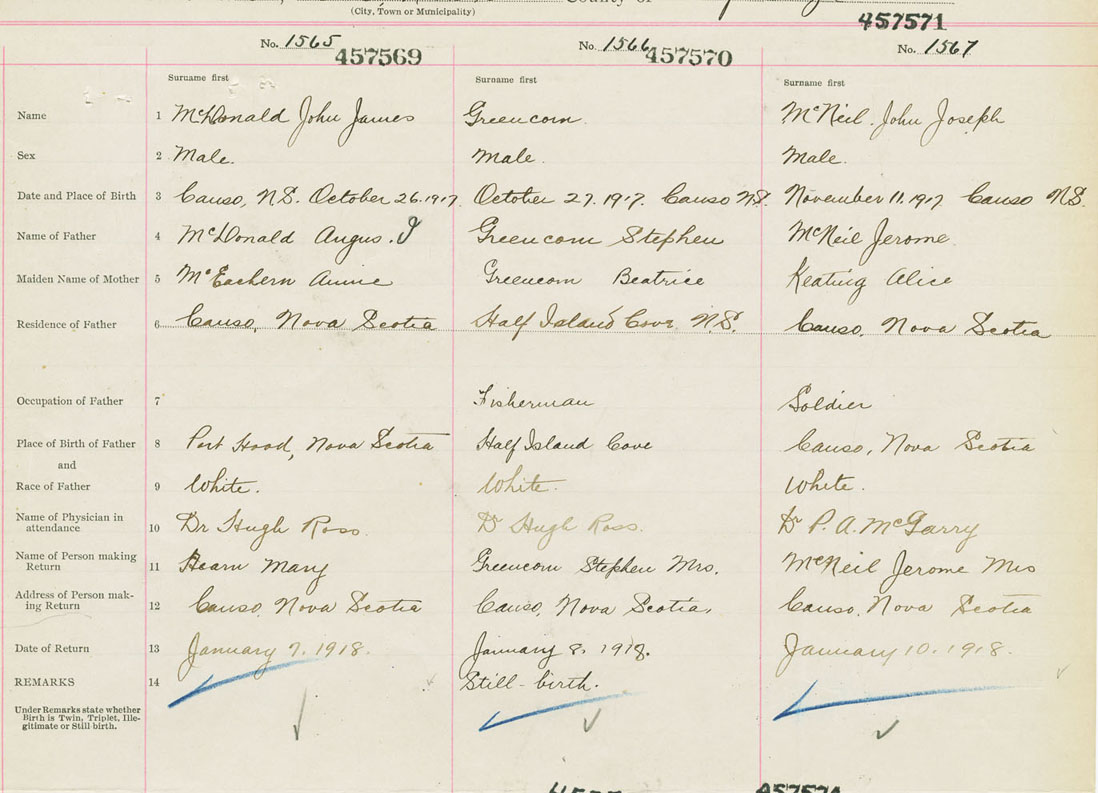 County of
(City, Town or Municipality)
457571
No. 1565 457569 No. 1566 457570 No. 1567
Surname first Surname first Surname first
Name 1 McDonald John James Greencorn. McNeil John Joseph
Sex 2 Male. Male. Male.
Date and Place of Birth 3 Canso, N.S. October 26.1917. October 27.1917. Canso N.S. November 11.1917 Canso N.S.
Name of Father 4 McDonald Angus. J Greencorn Stephen McNeil Jerome
Maiden Name of Mother 5 McEachern Annie Greencorn Beatrice Keating Alice
Residence of Father 6 Canso, Nova Scotia Half Island Cove N.S. Canso, Nova Scotia
Occupation of Father 7 Fisherman Soldier
Place of Birth of Father 8 Port Hood, Nova Scotia Half Island Cove Canso, Nova Scotia
and
Race of Father 9 White. White. White.
Name of Physician in
attendance 10 Dr Hugh Ross. Dr Hugh Ross. Dr P. A. McGarry
Name of Person making
Return 11 Hearn Mary Greencorn Stephen Mrs. McNeil Jerome Mrs
Address of Person mak-
ing Return 12 Canso, Nova Scotia Canso, Nova Scotia, Canso, Nova Scotia
Date of Return 13 January 7. 1918. January 8. 1918. January 10. 1918.
REMARKS 14 Still-birth.
Under Remarks state whether
Birth is Twin, Triplet, Ille-
gitimate or Still-birth.